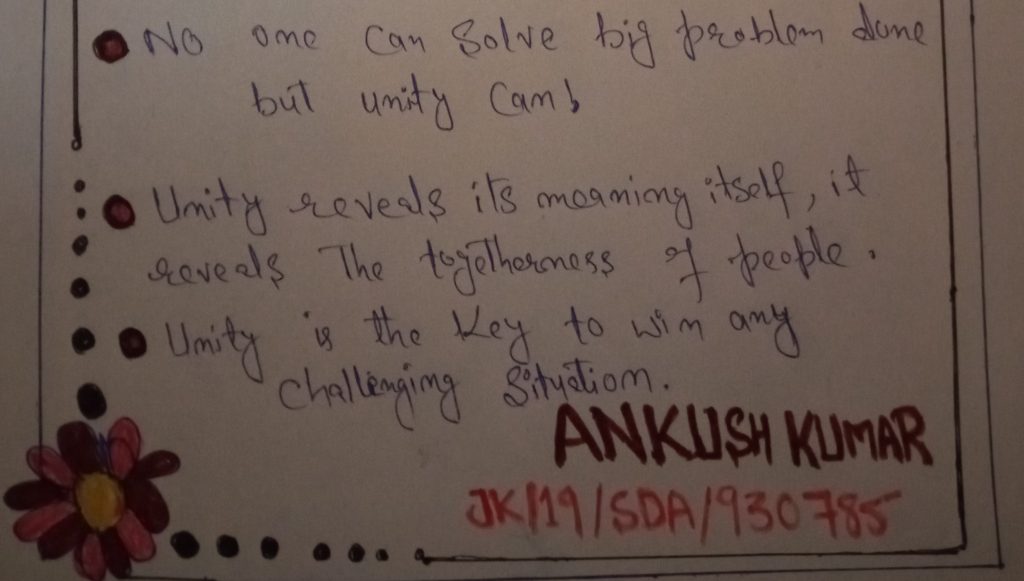 No one can solve big problem alone
but unity can.
Unity reveals its meaning itself, it
reveals The togetherness of people.
Unity is the key to win any
challenging situation.
ANKUSH KUMAR
JK/19/SDA/930785